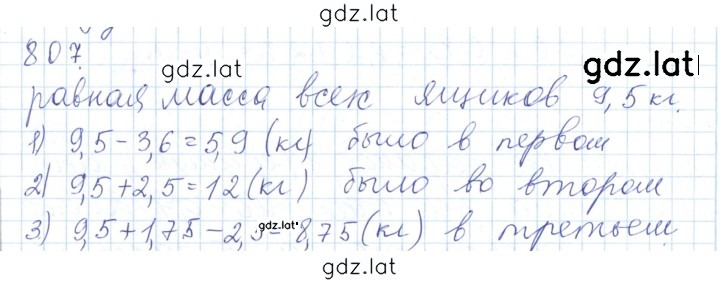 gdz.lat
807.
gdz.lat
gdz.lat
равная масса всех ящиков 9,5 кг.
1) 9,5 - 3,6 = 5,9 (кг) было в первом
2) 9,5 + 2,5 = 12 (кг) было во втором
gdz.lat
3) 9,5 + 1,75 - 2,5 = 8,75 (кг) в третьем
gdz.lat